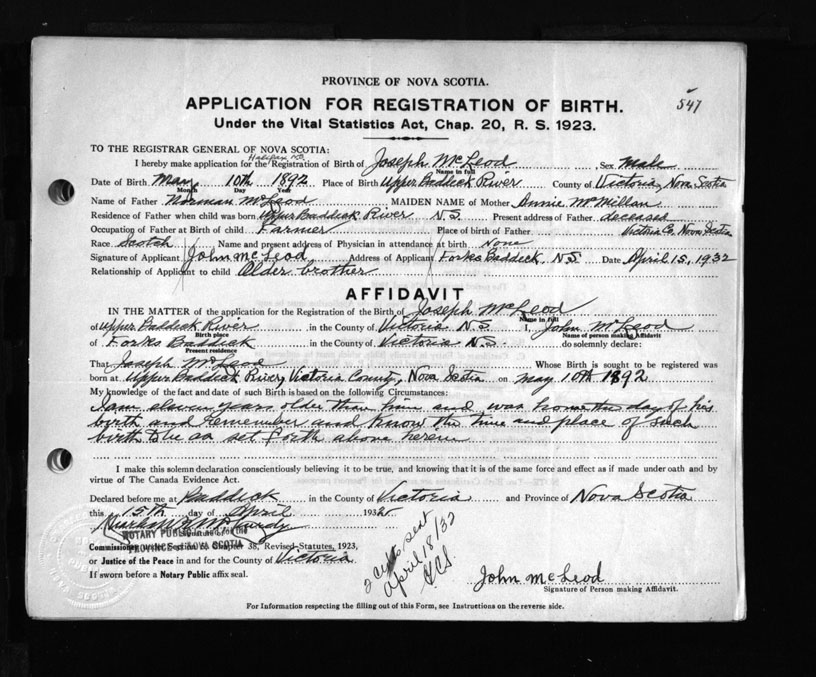 PROVINCE OF NOVA SCOTIA.
547
APPLICATION FOR REGISTRATION OF BIRTH.
Under the Vital Statistics Act, Chap. 20, R. S. 1923.
TO THE REGISTRAR GENERAL OF NOVA SCOTIA:
Halifax N.S.
I hereby make application for the Registration of Birth of Joseph McLeod Sex Male
Name in full
Date of Birth May 10th 1892 Place of Birth Upper Baddeck River County of Victoria, Nova Scotia
Month Day Year
Name of Father Norman McLeod MAIDEN NAME of Mother Annie McMillan
Residence of Father when child was born Upper Baddeck River N.S. Present address of Father deceased
Occupation of Father at Birth of child Farmer Place of birth of Father Victoria Co, Nova Scotia
Race Scotch Name and present address of Physician in attendance at birth None
Signature of Applicant John McLeod Address of Applicant Forks Baddeck, N.S. Date April 15, 1932
Relationship of Applicant to child Older brother
AFFIDAVIT
IN THE MATTER of the application for the Registration of the Birth of Joseph McLeod
Name in full
of Upper Baddeck River in the County of Victoria N.S. I, John McLeod
Birth place Name of person making Affidavit
of Forks Baddeck in the County of Victoria N.S. do solemnly declare:
Present residence
That Joseph McLeod Whose Birth is sought to be registered was
born at Upper Baddeck River, Victoria County, Nova Scotia on May 10th 1892
My knowledge of the fact and date of such Birth is based on the following Circumstances:
I am eleven years older than him and was home the day of his
birth and remember and know the time and place of such
birth to be as set forth above herein
I make this solemn declaration conscientiously believing it to be true, and knowing that it is of the same force and effect as if made under oath and by
virtue of The Canada Evidence Act.
Declared before me at Baddeck in the County of Victoria and Province of Nova Scotia
this 15th day of April 1932
McCurdy
NOTARY PUBLIC in and for the
PROVINCE OF NOVA SCOTIA
Commissioner under Section of Chapter 38, Revised Statutes, 1923,
or Justice of the Peace in and for the County of Victoria
If sworn before a Notary Public affix seal.
2 sent
April 18/32
John McLeod
Signature of Person making Affidavit.
For Information respecting the filling out of this Form, see Instructions on the reverse side.